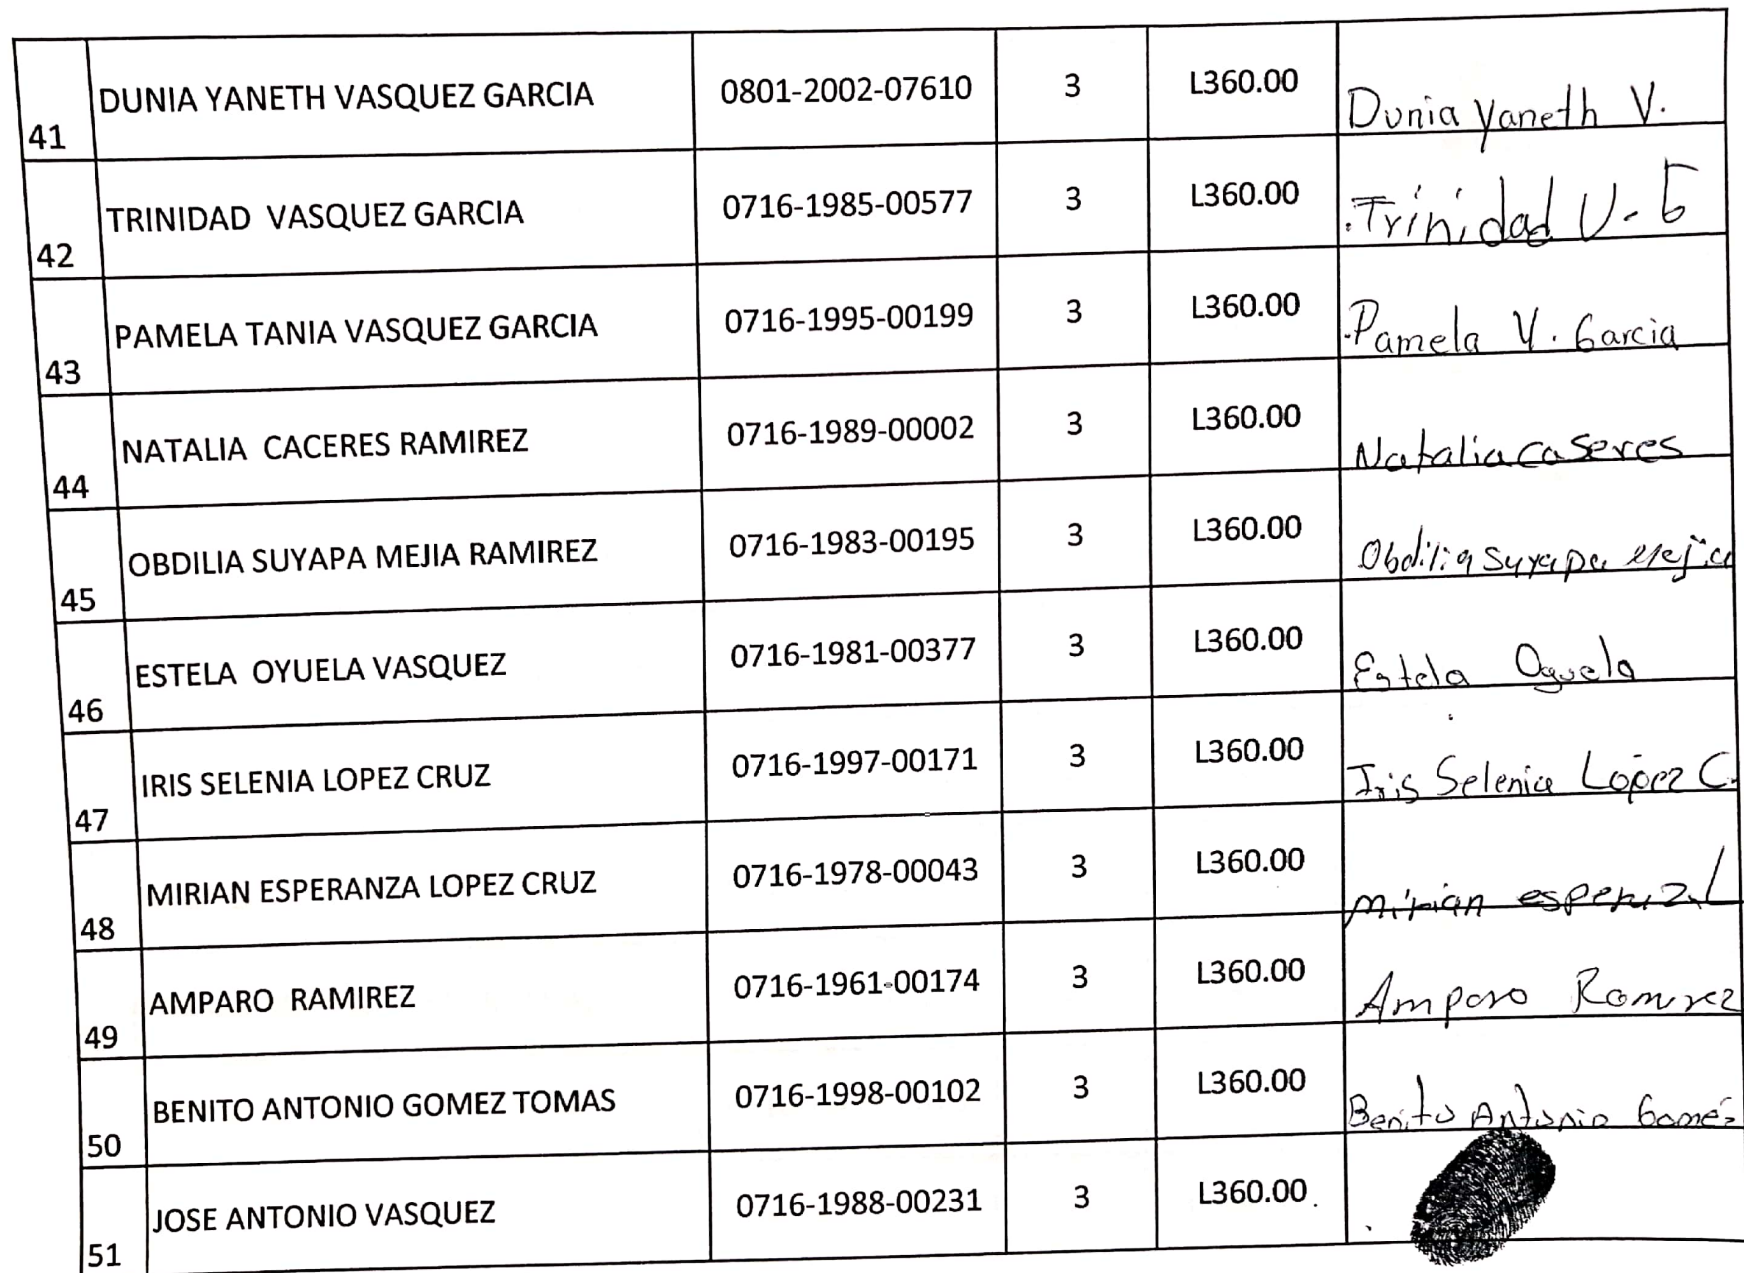 41 DUNIA YANETH VASQUEZ GARCIA 0801-2002-07610 3 L360.00 Dunia Yaneth V.
42 TRINIDAD VASQUEZ GARCIA 0716-1985-00577 3 L360.00 Trinidad V. G
43 PAMELA TANIA VASQUEZ GARCIA 0716-1995-00199 3 L360.00 Pamela V. Garcia
44 NATALIA CACERES RAMIREZ 0716-1989-00002 3 L360.00 Natalia caseres
45 OBDILIA SUYAPA MEJIA RAMIREZ 0716-1983-00195 3 L360.00 Obdilia suyapa mejia
46 ESTELA OYUELA VASQUEZ 0716-1981-00377 3 L360.00 Estela Oyuela
47 IRIS SELENIA LOPEZ CRUZ 0716-1997-00171 3 L360.00 Iris Selenia López C.
48 MIRIAN ESPERANZA LOPEZ CRUZ 0716-1978-00043 3 L360.00 mirian L
49 AMPARO RAMIREZ 0716-1961-00174 3 L360.00 Amparo Ramirez
50 BENITO ANTONIO GOMEZ TOMAS 0716-1998-00102 3 L360.00 Benito Antonio Goméz
51 JOSE ANTONIO VASQUEZ 0716-1988-00231 3 L360.00